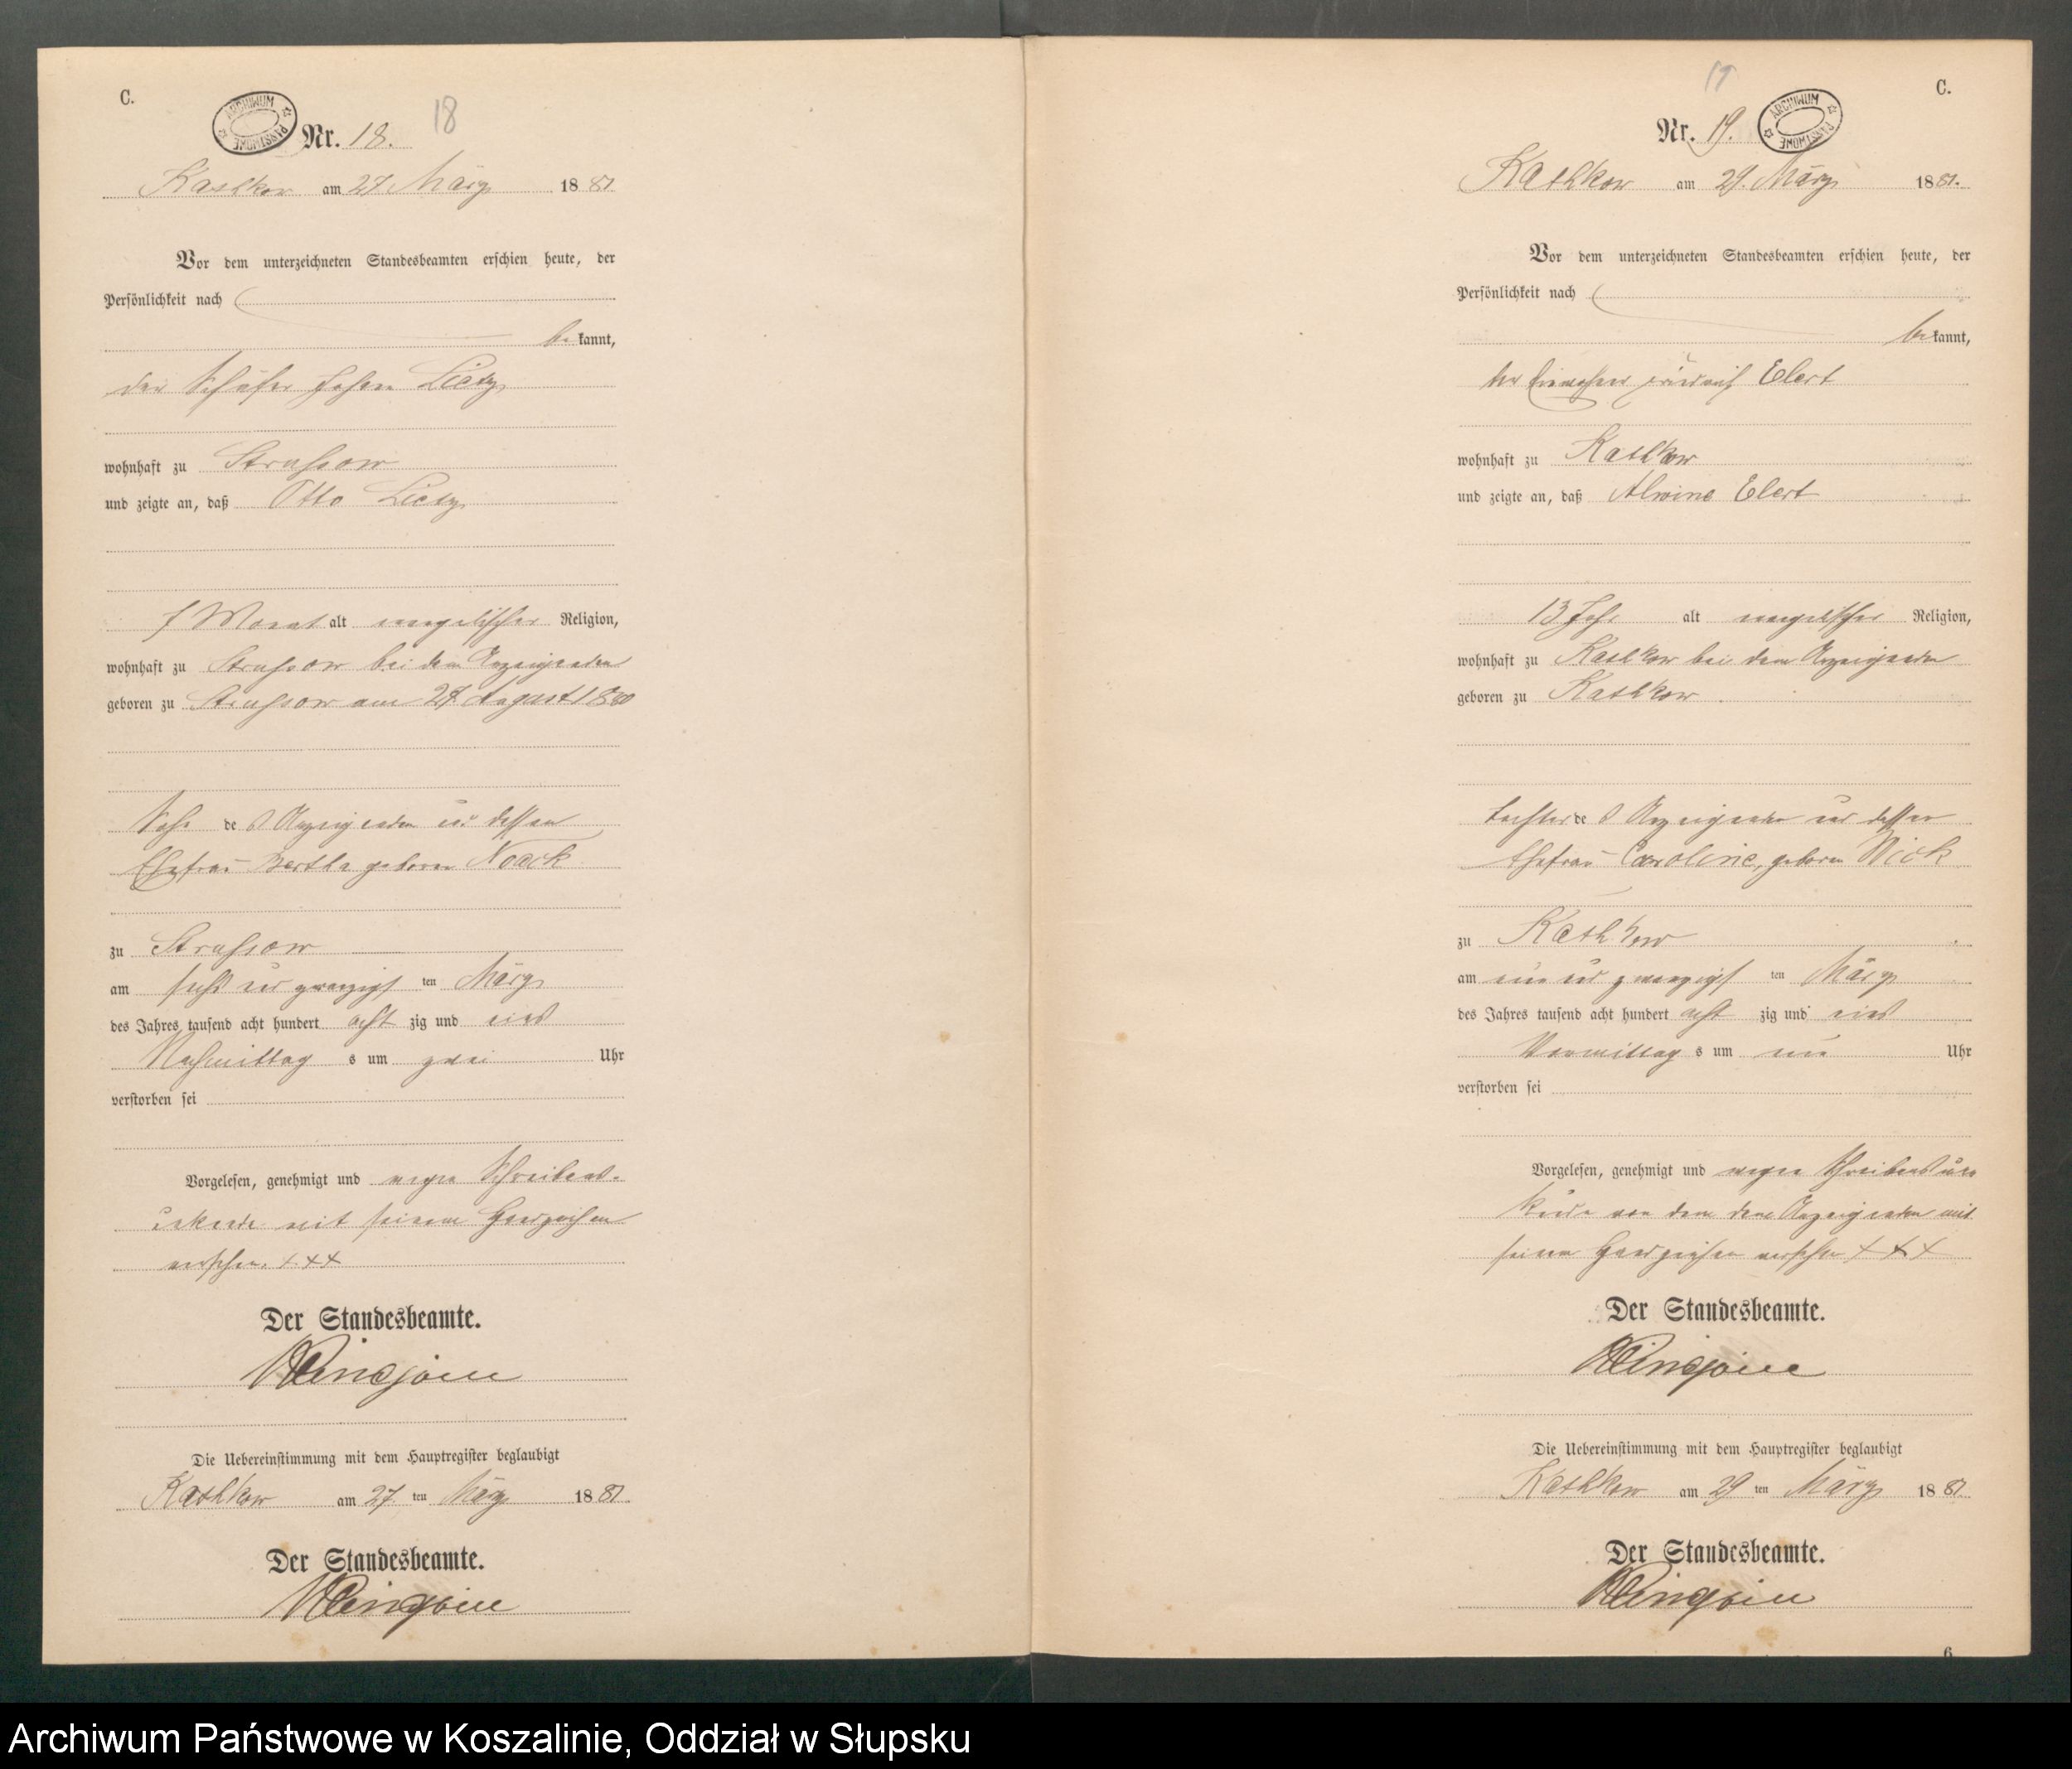 C.
ARCHIWUM PAŃSTWOWE
Nr. 18.
18
Kathkow am 27 März 1881
Vor dem unterzeichneten Standesbeamten erschien heute, der
Persönlichkeit nach
bekannt,
der Schäfer Johann Lietz
wohnhaft zu Strussow
und zeigte an, daß Otto Lietz
7 Monat alt evangelischer Religion,
wohnhaft zu Strussow bei dem Anzeigenden
geboren zu Strussow am 27 August 1880
Sohn des Anzeigenden und dessen
Ehefrau Bertha geboren Noack
zu Strussow
am sechs und zwanzigsten März
des Jahres tausend acht hundert achtzig und eins
Nachmittags um zwei Uhr
verstorben sei
Vorgelesen, genehmigt und wegen Schreibens-
unkunde mit seinem Handzeichen
versehen. + + +
Der Standesbeamte.
Die Uebereinstimmung mit dem Hauptregister beglaubigt
Kathkow am 27 ten März 1881.
Der Standesbeamte.
19
C.
Nr. 19.
ARCHIWUM PAŃSTWOWE
Kathkow am 29. März 1881.
Vor dem unterzeichneten Standesbeamten erschien heute, der
Persönlichkeit nach
bekannt,
der Einwohner Friedrich Elert
wohnhaft zu Kathkow
und zeigte an, daß Alwine Elert
13 Jahr alt evangelischer Religion,
wohnhaft zu Kathkow bei dem Anzeigenden
geboren zu Kathkow
Tochter des Anzeigenden und dessen
Ehefrau Caroline, geboren Wick
zu Kathkow
am und zwanzigsten März
des Jahres tausend acht hundert achtzig und eins
Vormittags um Uhr
verstorben sei
Vorgelesen, genehmigt und wegen Schreibensun
kunde von dem Anzeigenden mit
seinem Handzeichen versehen + + +
Der Standesbeamte.
Die Uebereinstimmung mit dem Hauptregister beglaubigt
Kathkow am 29 ten März 1881.
Der Standesbeamte.
6
Archiwum Państwowe w Koszalinie, Oddział w Słupsku